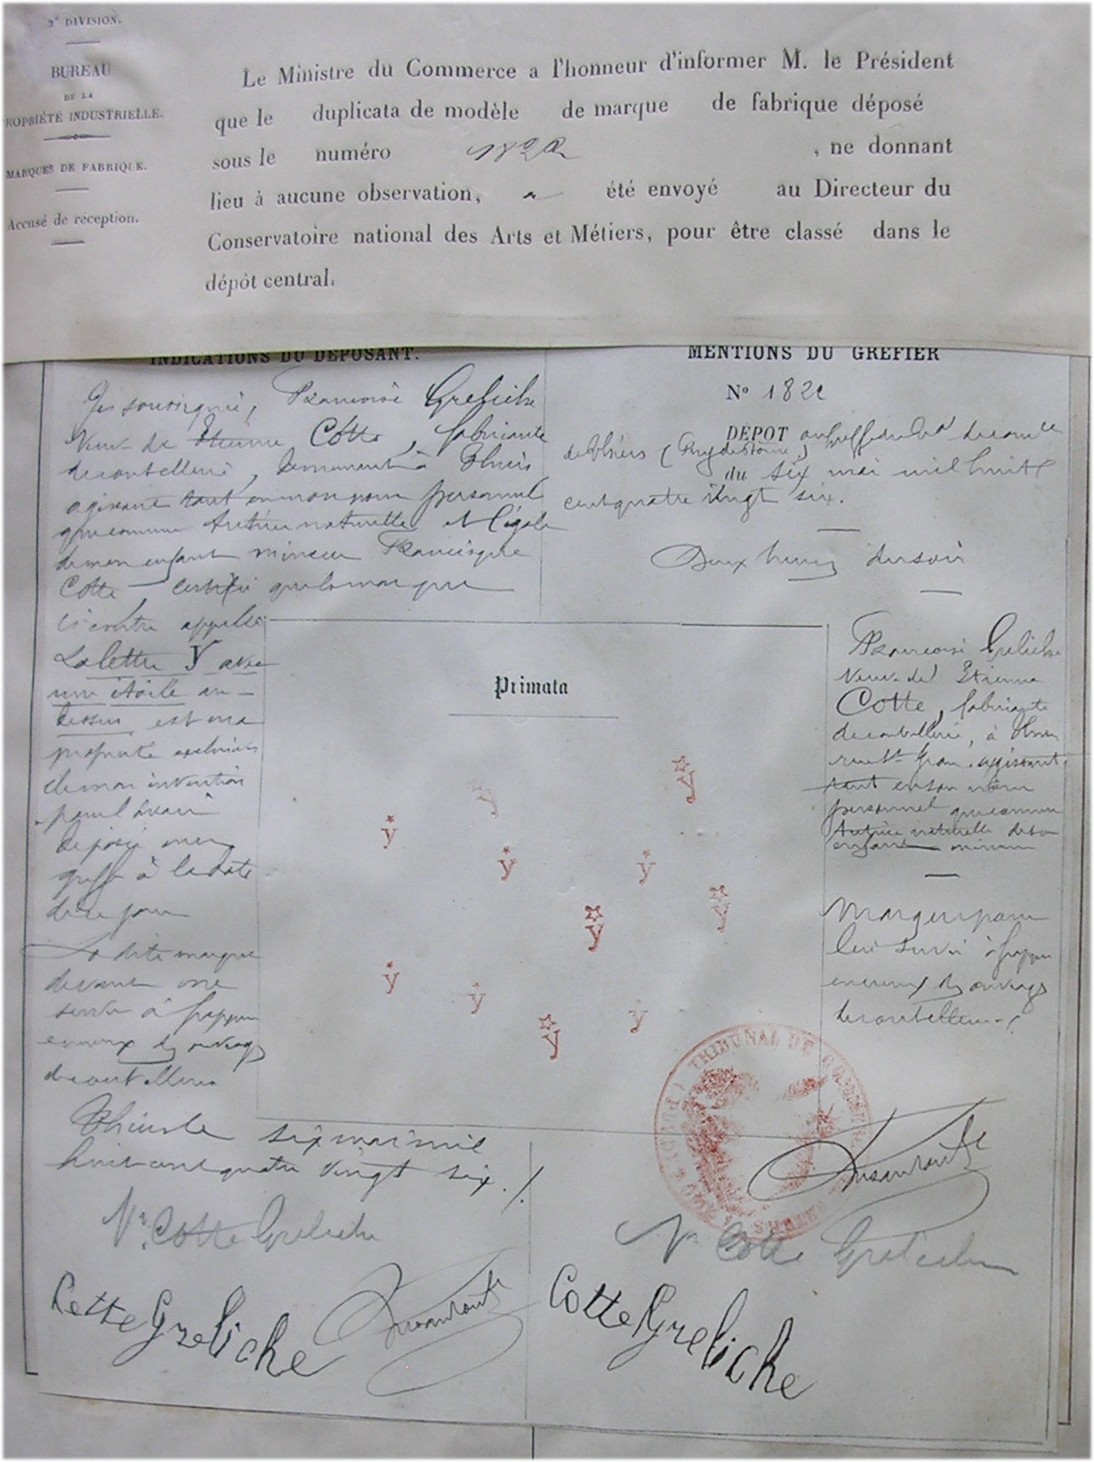 2e DIVISION.
BUREAU
DE LA
PROPRIÉTÉ INDUSTRIELLE.
MARQUES DE FABRIQUE.
Accusé de réception.
Le Ministre du Commerce a l'honneur d'informer M. le Président
que le duplicata de modèle de marque de fabrique déposé
sous le numéro , ne donnant
lieu à aucune observation, a été envoyé au Directeur du
Conservatoire national des Arts et Métiers, pour être classé dans le
dépôt central.
INDICATIONS DU DÉPOSANT.
Je soussignée, Françoise Greliche
Veuve de Etienne Cotte, fabricante
de coutellerie, demeurant à Thiers
agissant tant en mon nom personnel
que comme tutrice naturelle et légale
de mon enfant mineur Francisque
Cotte certifie que la marque
ci contre appelée
La lettre Y avec
une étoile au-
dessus est ma
propriété exclusive
de mon invention
pour l'avoir
déposée au
greffe à la date
de ce jour
La dite marque
devant me
servir à frapper
en creux des ouvrages
de coutellerie
Thiers le six mai mil
huit cent quatre vingt six ./.
Ve Cotte Greliche
Cotte Greliche
MENTIONS DU GREFIER
No 182
DÉPOT au greffe du de com ce
de Thiers (Puy de Dôme)
du six mai mil huit
cent quatre vingt six.
Deux heures du soir
Françoise Greliche
Veuve de Etienne
Cotte, fabricante
de coutellerie, à Thiers
rue agissant
tant en son nom
personnel que comme
tutrice naturelle de son
enfant mineur
Marque pour
lui servir à frapper
en creux des ouvrages
de coutellerie
Primata
y
y
y
y
y
y
y
y
y
y
y
TRIBUNAL DE COMMERCE
Ve Cotte Greliche
Cotte Greliche